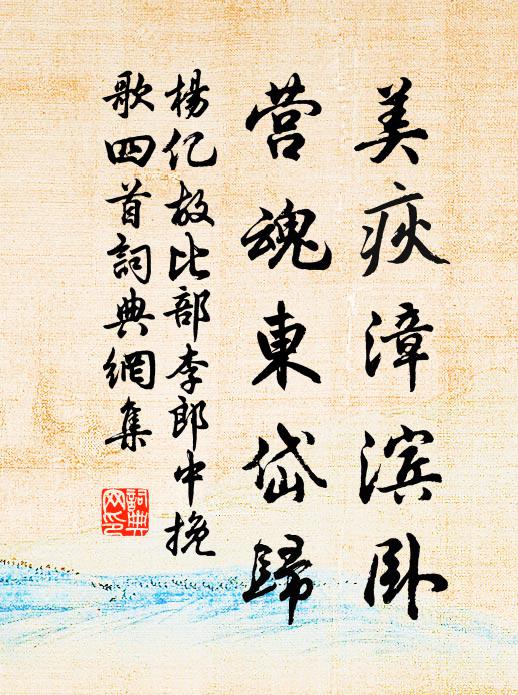 美疢漳滨卧
营魂東岱歸
楊亿故比部李郎中挽
歌四首詞典網集
詞典
网印